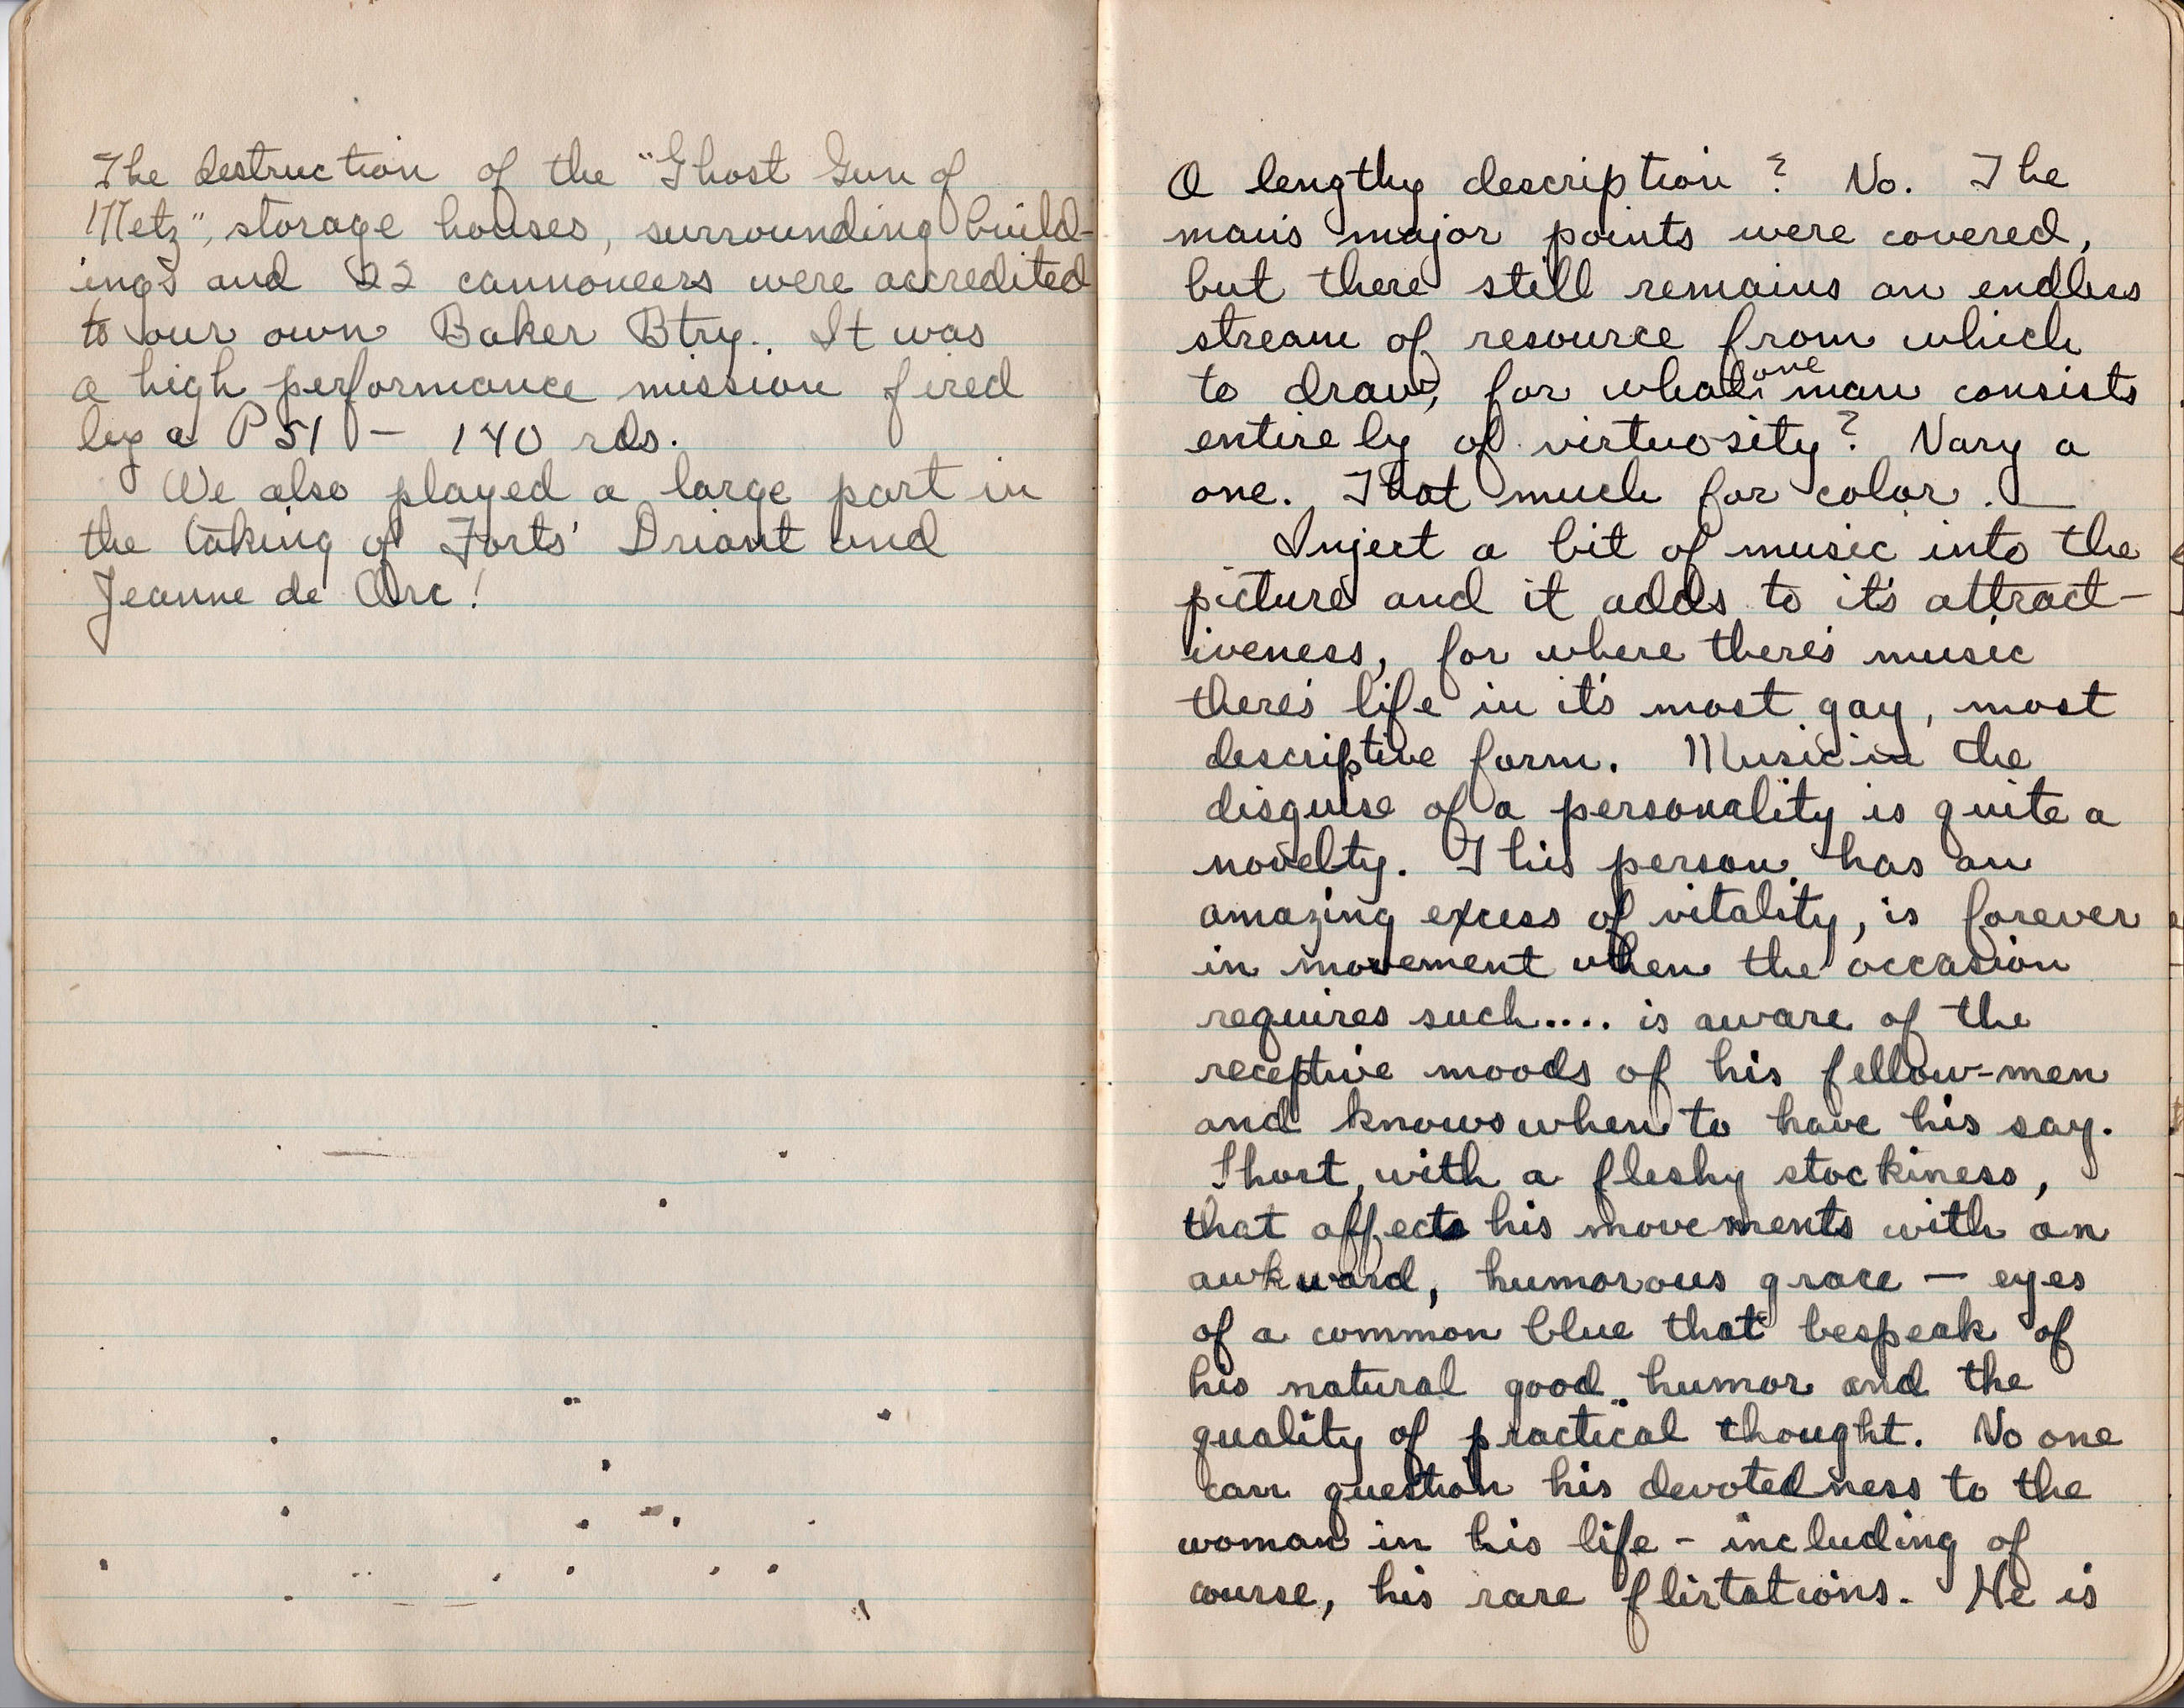 The destruction of the "Ghost Gun of
Metz", storage houses, surrounding build-
ings and 22 cannoneers were accredited
to our own Baker Btry.. It was
a high performance mission fired
by a P51 - 140 rds.
We also played a large part in
the taking of Forts' Driant and
Jeanne de Arc!
A lengthy description? No. The
man's major points were covered,
but there still remains an endless
stream of resource from which
to draw, for what one man consists
entirely of virtuosity? Nary a
one. That much for color. —
Inject a bit of music into the
picture and it adds to it's attract-
iveness, for where there's music
there's life in it's most gay, most
descriptive form. Music in the
disguise of a personality is quite a
novelty. This person has an
amazing excess of vitality, is forever
in movement when the occasion
requires such.... is aware of the
receptive moods of his fellow-men
and knows when to have his say.
Short, with a fleshy stockiness,
that affects his movements with an
awkward, humorous grace — eyes
of a common blue that bespeak of
his natural good humor and the
quality of practical thought. No one
can question his devotedness to the
woman in his life - including of
course, his rare flirtations. He is